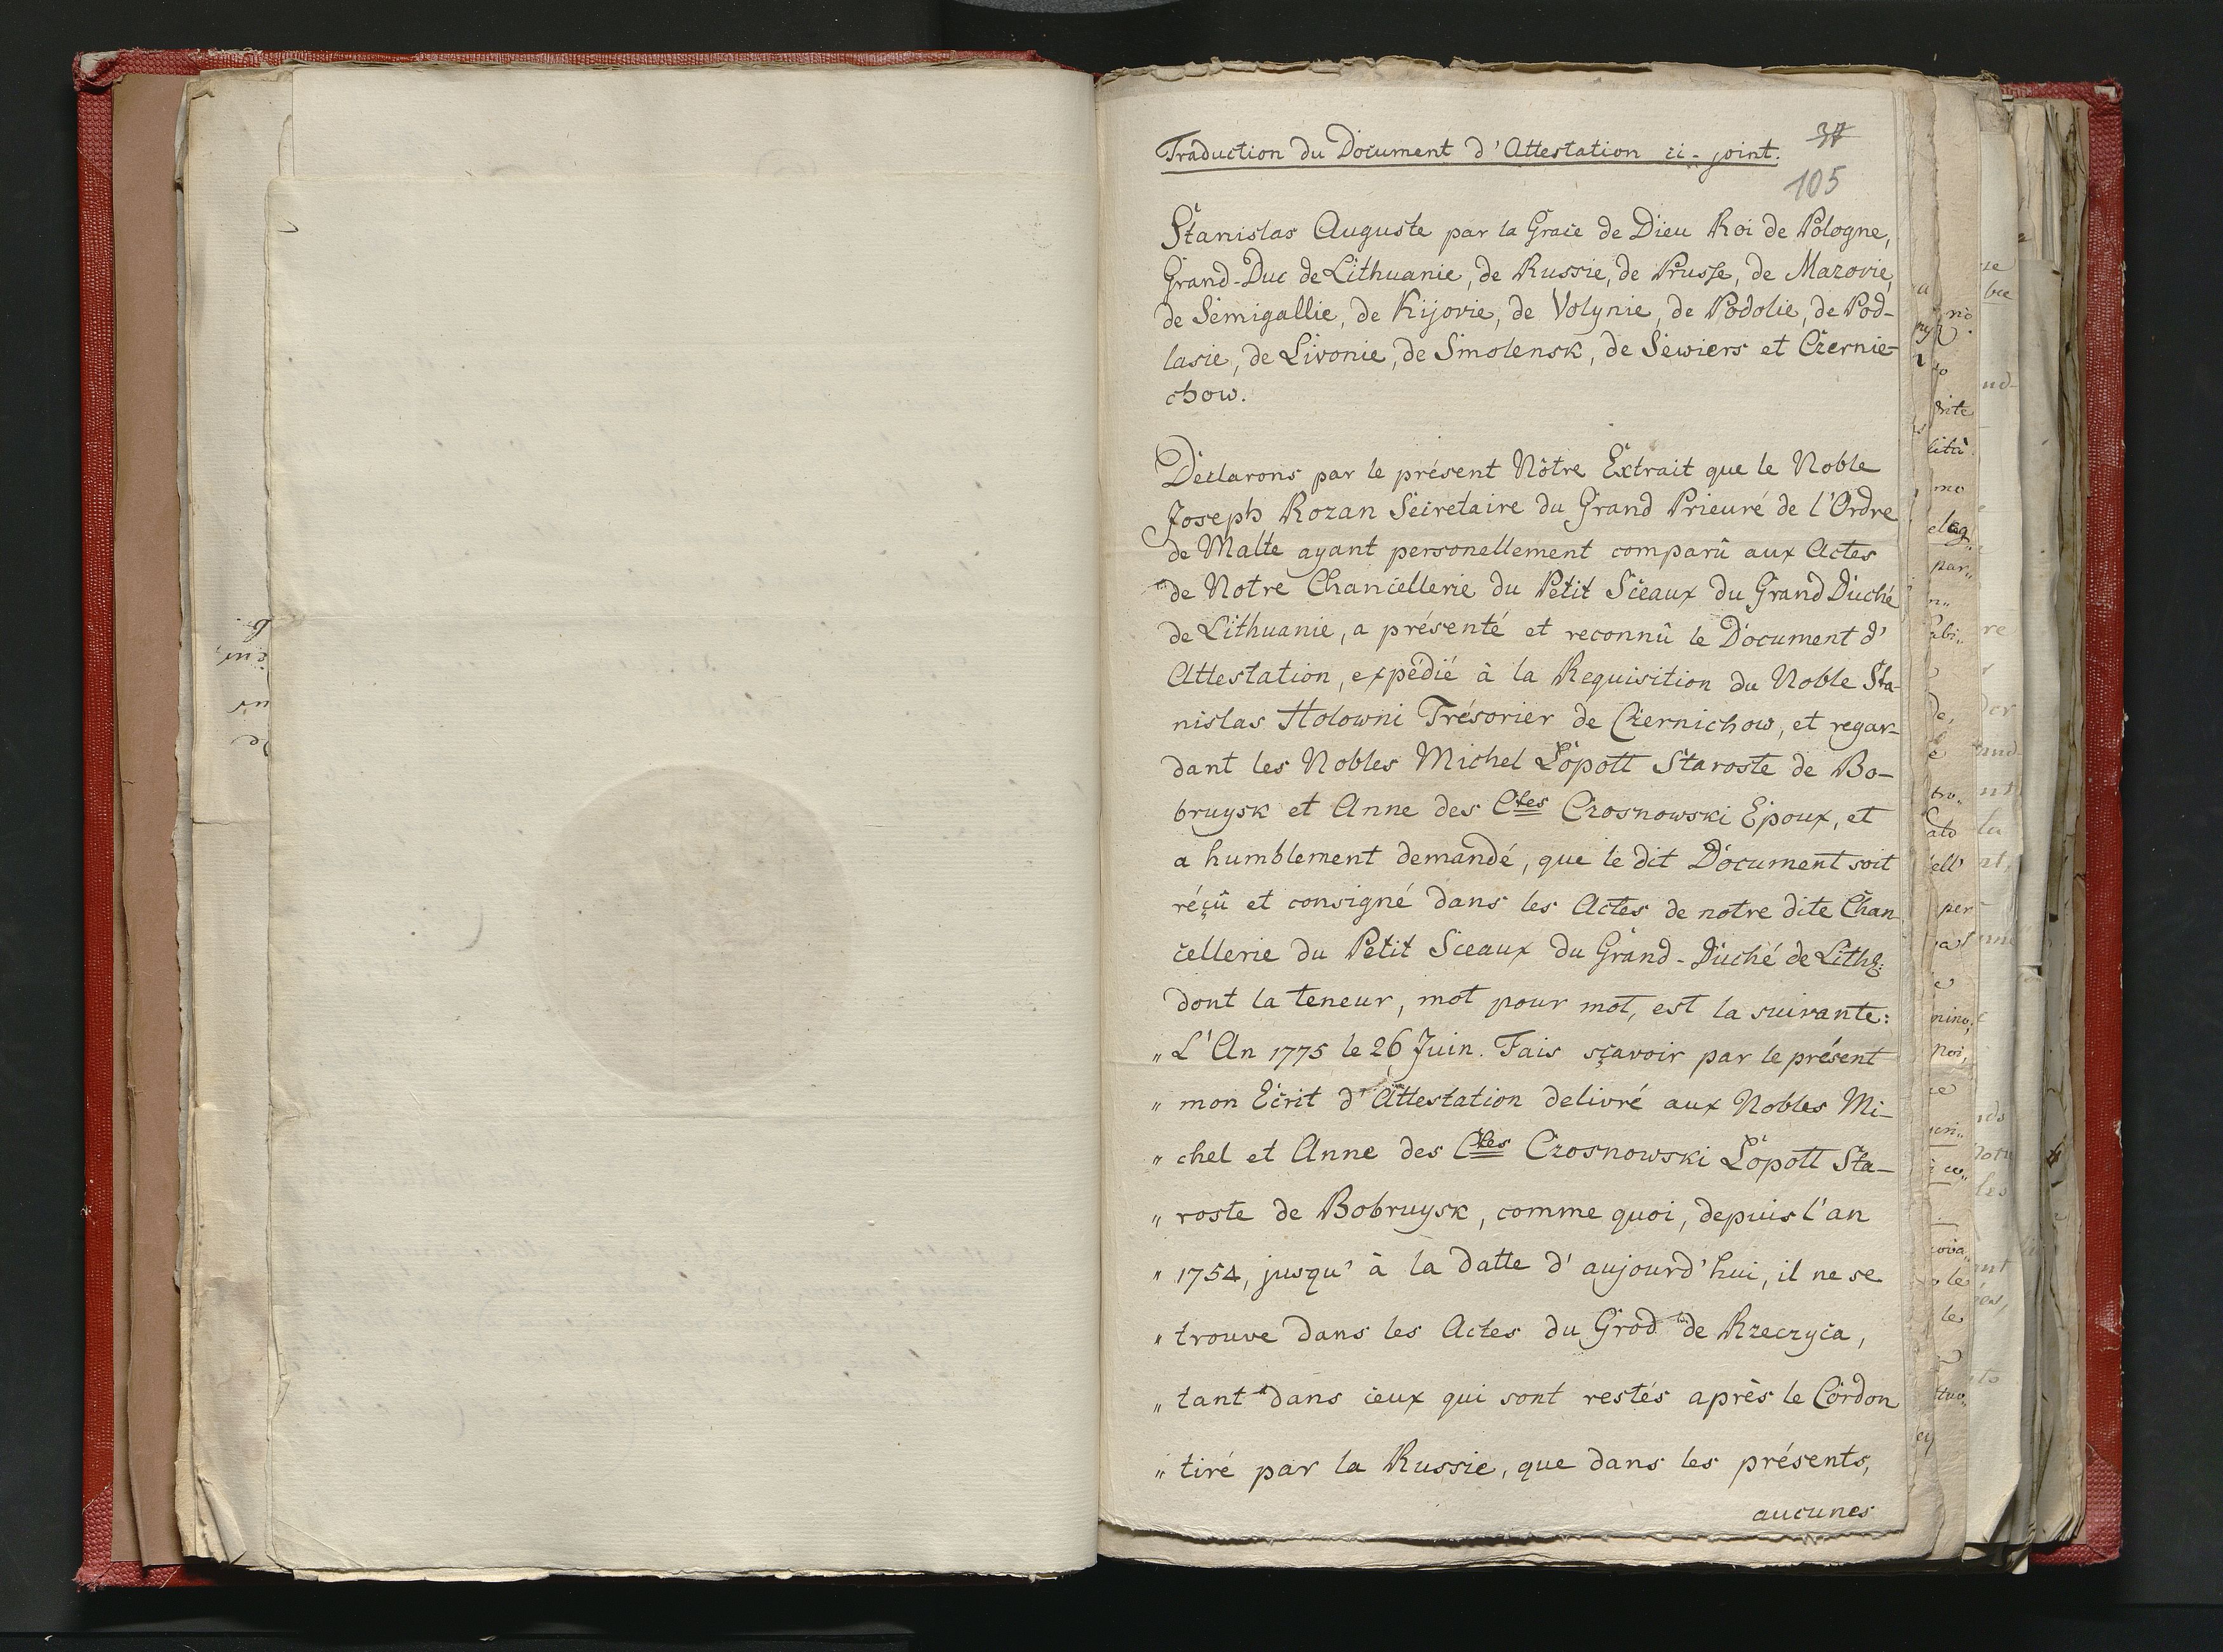 Traduction du Document d'Attestation ci-joint.
37
105
Stanislas Auguste par la Grace de Dieu Roi de Pologne,
Grand-Duc de Lithuanie, de Russie, de Prusse, de Mazovie,
de Semigallie, de Kijovie, de Volynie, de Podolie, de Pod-
lasie, de Livonie, de Smolensk, de Sewiers et Czernie-
chow.
Declarons par le présent Nôtre Extrait que le Noble
Joseph Rozan Secretaire du Grand Prieuré de l'Ordre
de Malte ayant personellement comparû aux Actes
de Notre Chancellerie du Petit Sceaux du Grand Duché
de Lithuanie, a présenté et reconnû le Document d'
Attestation, expédié à la Requisition du Noble Sta-
nislas Holowni Trésorier de Czernichow, et regar-
dant les Nobles Michel Łopott Staroste de Bo-
bruysk et Anne des Ctes Czosnowski Epoux, et
a humblement demandé, que le dit Document soit
réçû et consigné dans les Actes de notre dite Chan
cellerie du Petit Sceaux du Grand-Duché de Lith:
dont la teneur, mot pour mot, est la suivante:
„ L'An 1775 le 26 Juin. Fais sçavoir par le présent
„ mon Ecrit d'Attestation delivré aux Nobles Mi-
„ chel et Anne des Ctes Czosnowski Łopott Sta-
„ roste de Bobruysk, comme quoi, depuis l'an
„ 1754, jusqu'à la datte d'aujourd'hui, il ne se
„ trouve dans les Actes du Grod de Rzeczyca,
„ tant dans ceux qui sont restés après le Cordon
„ tiré par la Russie, que dans les présents,
aucunes